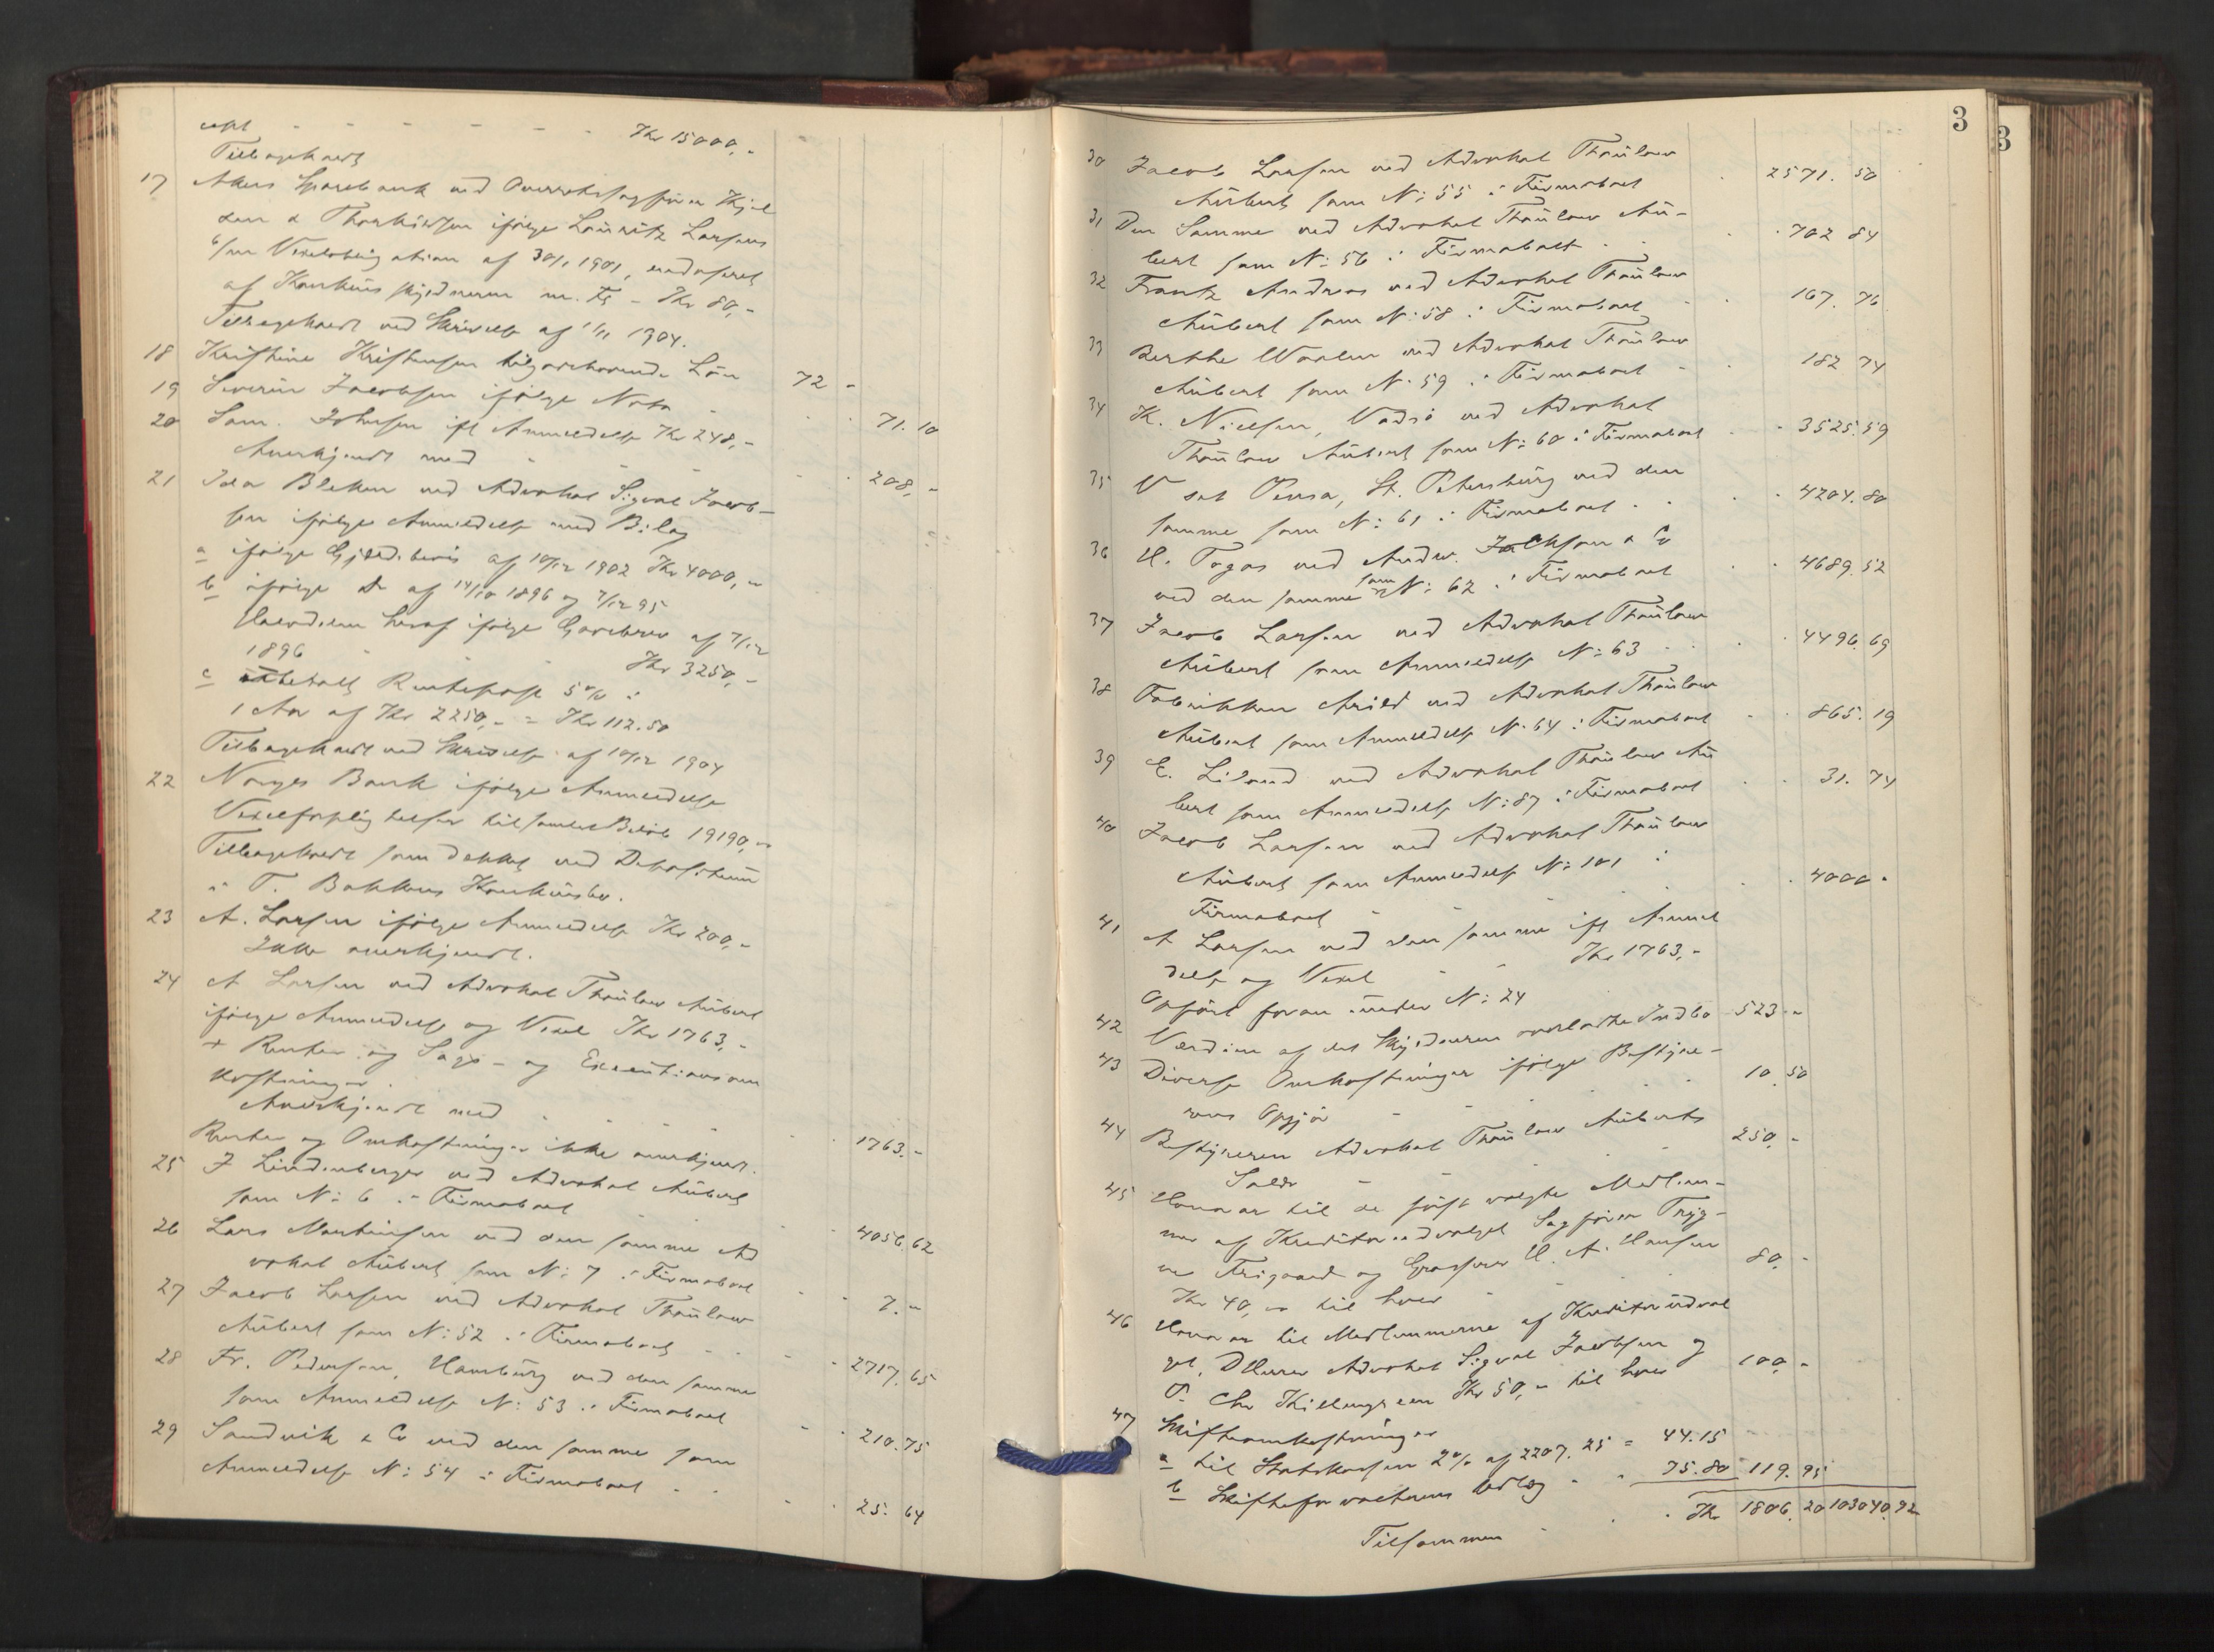 Kr 15000,-
Tilbagekaldt
17 Akers Sparebank ved Overretssagfører Kjel
den & Thorkildsen ifølge Lauritz Larsens
Vexelobligation af 30/1 1901, endosseret
af Konkursskyldneren m. Fl - Kr 80,-
Tilbagekaldt ved Skrivelse af 1/11 1904.
18 Kristine Kristensen tilgodehavende Løn 72 -
19 Severin Jacobsen ifølge Nota - 71.10
20 Sam. Johnsen ifl Anmeldelse Kr 248,-
Anerkjendt med - - - 208,-
21 Ida Blekum ved Advokat Sigval Jacob-
sen ifølge Anmeldelse med Bilag
a ifølge Gjældsbevis af 10/12 1902 Kr 4000,-
b ifølge Do af 14/10 1896 og 7/12 95
heraf ifølge Gavebrev af 7/12
1896 - Kr 3250,-
c ubetalt Rente 5% i
1 Aar af Kr 2250,- = Kr 112.50
Tilbagekaldt ved Skrivelse af 10/12 1904
22 Norges Bank ifølge Anmeldelse
Vexelforpligtelser tilsammen Beløb 19190,-
Tilbagekaldt som dækket ved Depositum
i T. Bakkens Konkursbo.
23 A. Larsen ifølge Anmeldelse Kr 200,-
Ikke anerkjendt.
24 A Larsen ved Advokat Thaulow Aubert
ifølge Anmeldelse og Vexel Kr 1763,-
+ Renter og Sags- og Executionsom
kostninger.
Anerkjendt med - - - 1763.-
Renter og Omkostninger ikke anerkjendt.
25 J Lindenberger ved Advokat Aubert
som N: 6 i Firmaboet 4056.62
26 Lars Martinsen ved den samme Ad
vokat Aubert som N: 7 i Firmaboet 7.-
27 Jacob Larsen ved Advokat Thaulow
Aubert som N: 52 i Firmaboet - - 2717.65
28 Fr. Pedersen, Hamburg ved den samme
som Anmeldelse N: 53 i Firmaboet 210.75
29 Sandvik & Co ved den samme som
Anmeldelse N: 54 i Firmaboet - - 25.64
3
3
30 Jacob Larsen ved Advokat Thaulow
Aubert som N: 55 i Firmaboet 2571.50
31 Den Samme ved Advokat Thaulow Au-
bert som N: 56 i Firmaboet - - 702 84
32 Frantz Andreas ved Advokat Thaulow
Aubert som N: 58 i Firmaboet - 167.76
33 Berthe Waalen ved Advokat Thaulow
Aubert som N: 59 i Firmaboet - 182 74
34 K. Nielsen, Vadsø ved Advokat
Thaulow Aubert som N: 60 i Firmaboet 3525.59
35 St. Petersburg ved den
samme som N: 61 i Firmaboet - - 4204.80
36 U. Togas ved Andr. Jackson & Co
ved den samme som N: 62 i Firmaboet 4689.52
37 Jacob Larsen ved Advokat Thaulow
Aubert som Anmeldelse N: 63 - - 4496.69
38 Fabrikken Arild ved Advokat Thaulow
Aubert som Anmeldelse N: 64 i Firmaboet 865.19
39 E. Liland ved Advokat Thaulow Au
bert som Anmeldelse N: 87 i Firmaboet 31.74
40 Jacob Larsen ved Advokat Thaulow
Aubert som Anmeldelse N: 101 i
Firmaboet 4000.
41 A Larsen ved den samme ifl Anmel
delse og Vexel - - Kr 1763,-
Opført foran under N: 24
42 Værdien af det Skyldneren overladte Indbo 523.-
43 Diverse Omkostninger ifølge Bestyre-
rens Opgjør - - - 10.50
44 Bestyreren Advokat Thaulow Auberts
Salær - - 250,-
45 Honorar til de først valgte Medlem-
mer af Kreditorudvalget Sagfører Tryg-
ve Frisgaard og Grosserer H. A. Hansen
Kr 40,- til hver - - 80,-
46 Honorar til Medlemmerne af Kreditorudval
get, DHerrer Advokat Sigval Jacobsen og
P. Chr Killengreen Kr 50,- til hver 100,-
47 Skifteomkostninger
a til Statskassen 2% af 2207.25 = 44.15
b Skifteforvalterens Udlæg - - 75.80 119.95
Tilsammen - - Kr 1806.20 103040.92